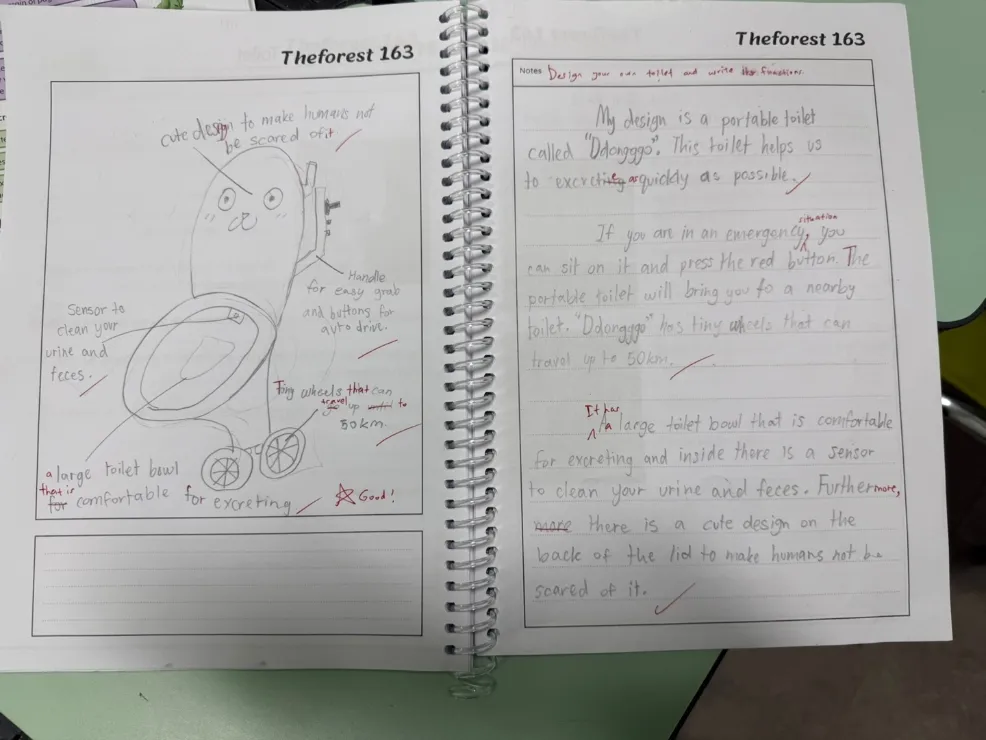 Theforest 163
cute design to make humans not
be scared of it
Handle
for easy grab
and buttons for
auto drive.
Sensor to
clean your
urine and
feces.
Tiny wheels that can
travel up to
50km.
a large toilet bowl
that is comfortable for excreting
Good!
Theforest 163
Notes Design your own toilet and write the functions.
My design is a portable toilet
called "Ddongggo". This toilet helps us
to excrete as quickly as possible.
If you are in an emergency situation, you
can sit on it and press the red button. The
portable toilet will bring you to a nearby
toilet. "Ddongggo" has tiny wheels that can
travel up to 50km.
It has a large toilet bowl that is comfortable
for excreting and inside there is a sensor
to clean your urine and feces. Furthermore,
there is a cute design on the
back of the lid to make humans not be
scared of it.